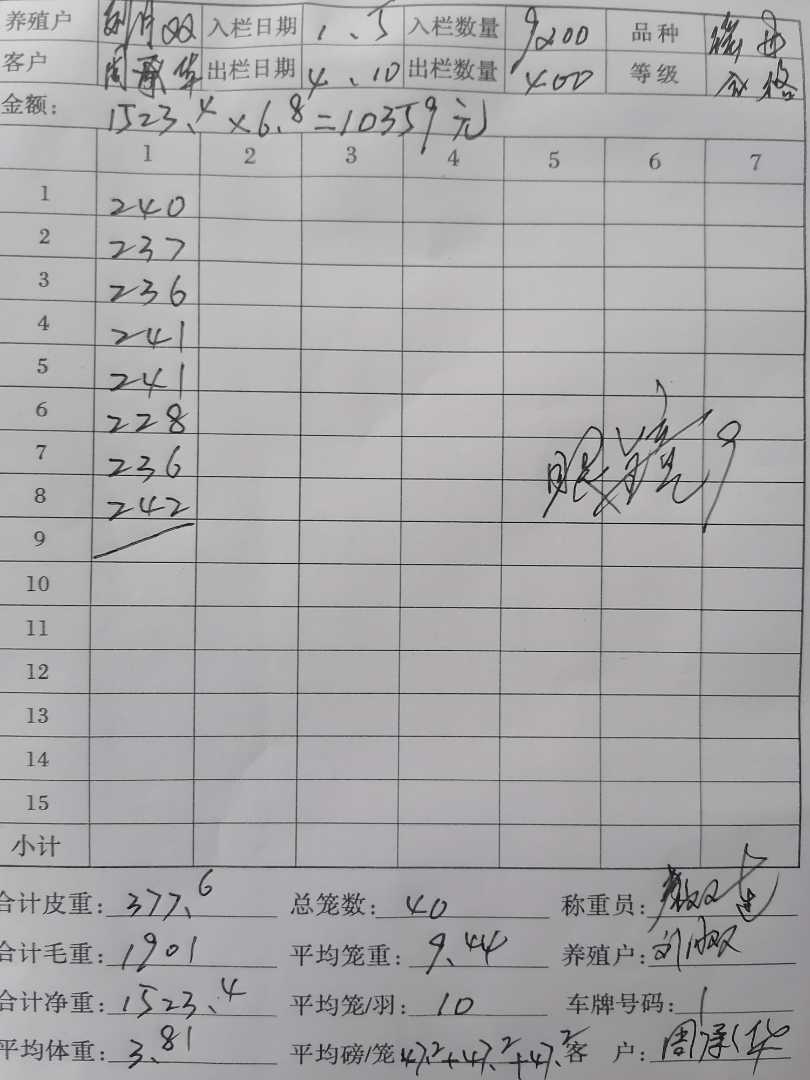 养殖户 入栏日期 1.5 入栏数量 9200 品种
客户 周承华 出栏日期 4.10 出栏数量 400 等级 合格
金额: 1523.4×6.8=10359元
1 2 3 4 5 6 7
1 240
2 237
3 236
4 241
5 241
6 228
7 236
8 242
9
10
11
12
13
14
15
小计
合计皮重: 377.6 总笼数: 40 称重员:
合计毛重: 1901 平均笼重: 9.44 养殖户: 刘
合计净重: 1523.4 平均笼/羽: 10 车牌号码: 1
平均体重: 3.81 平均磅/笼 47.2+47.2+47.2 客 户: 周承华